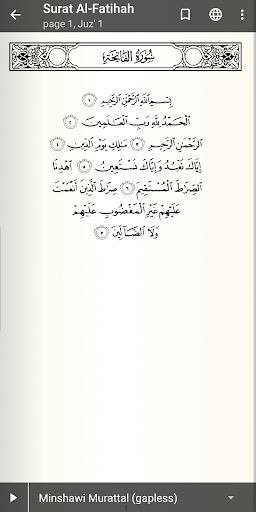 Surat Al-Fatihah
page 1, Juz' 1
سُورَةُ الفَاتِحَةِ
بِسْمِ ٱللَّهِ ٱلرَّحْمَٰنِ ٱلرَّحِيمِ ١
ٱلْحَمْدُ لِلَّهِ رَبِّ ٱلْعَٰلَمِينَ ٢
ٱلرَّحْمَٰنِ ٱلرَّحِيمِ ٣ مَٰلِكِ يَوْمِ ٱلدِّينِ ٤
إِيَّاكَ نَعْبُدُ وَإِيَّاكَ نَسْتَعِينُ ٥ ٱهْدِنَا
ٱلصِّرَٰطَ ٱلْمُسْتَقِيمَ ٦ صِرَٰطَ ٱلَّذِينَ أَنْعَمْتَ
عَلَيْهِمْ غَيْرِ ٱلْمَغْضُوبِ عَلَيْهِمْ
وَلَا ٱلضَّآلِّينَ ٧
Minshawi Murattal (gapless)